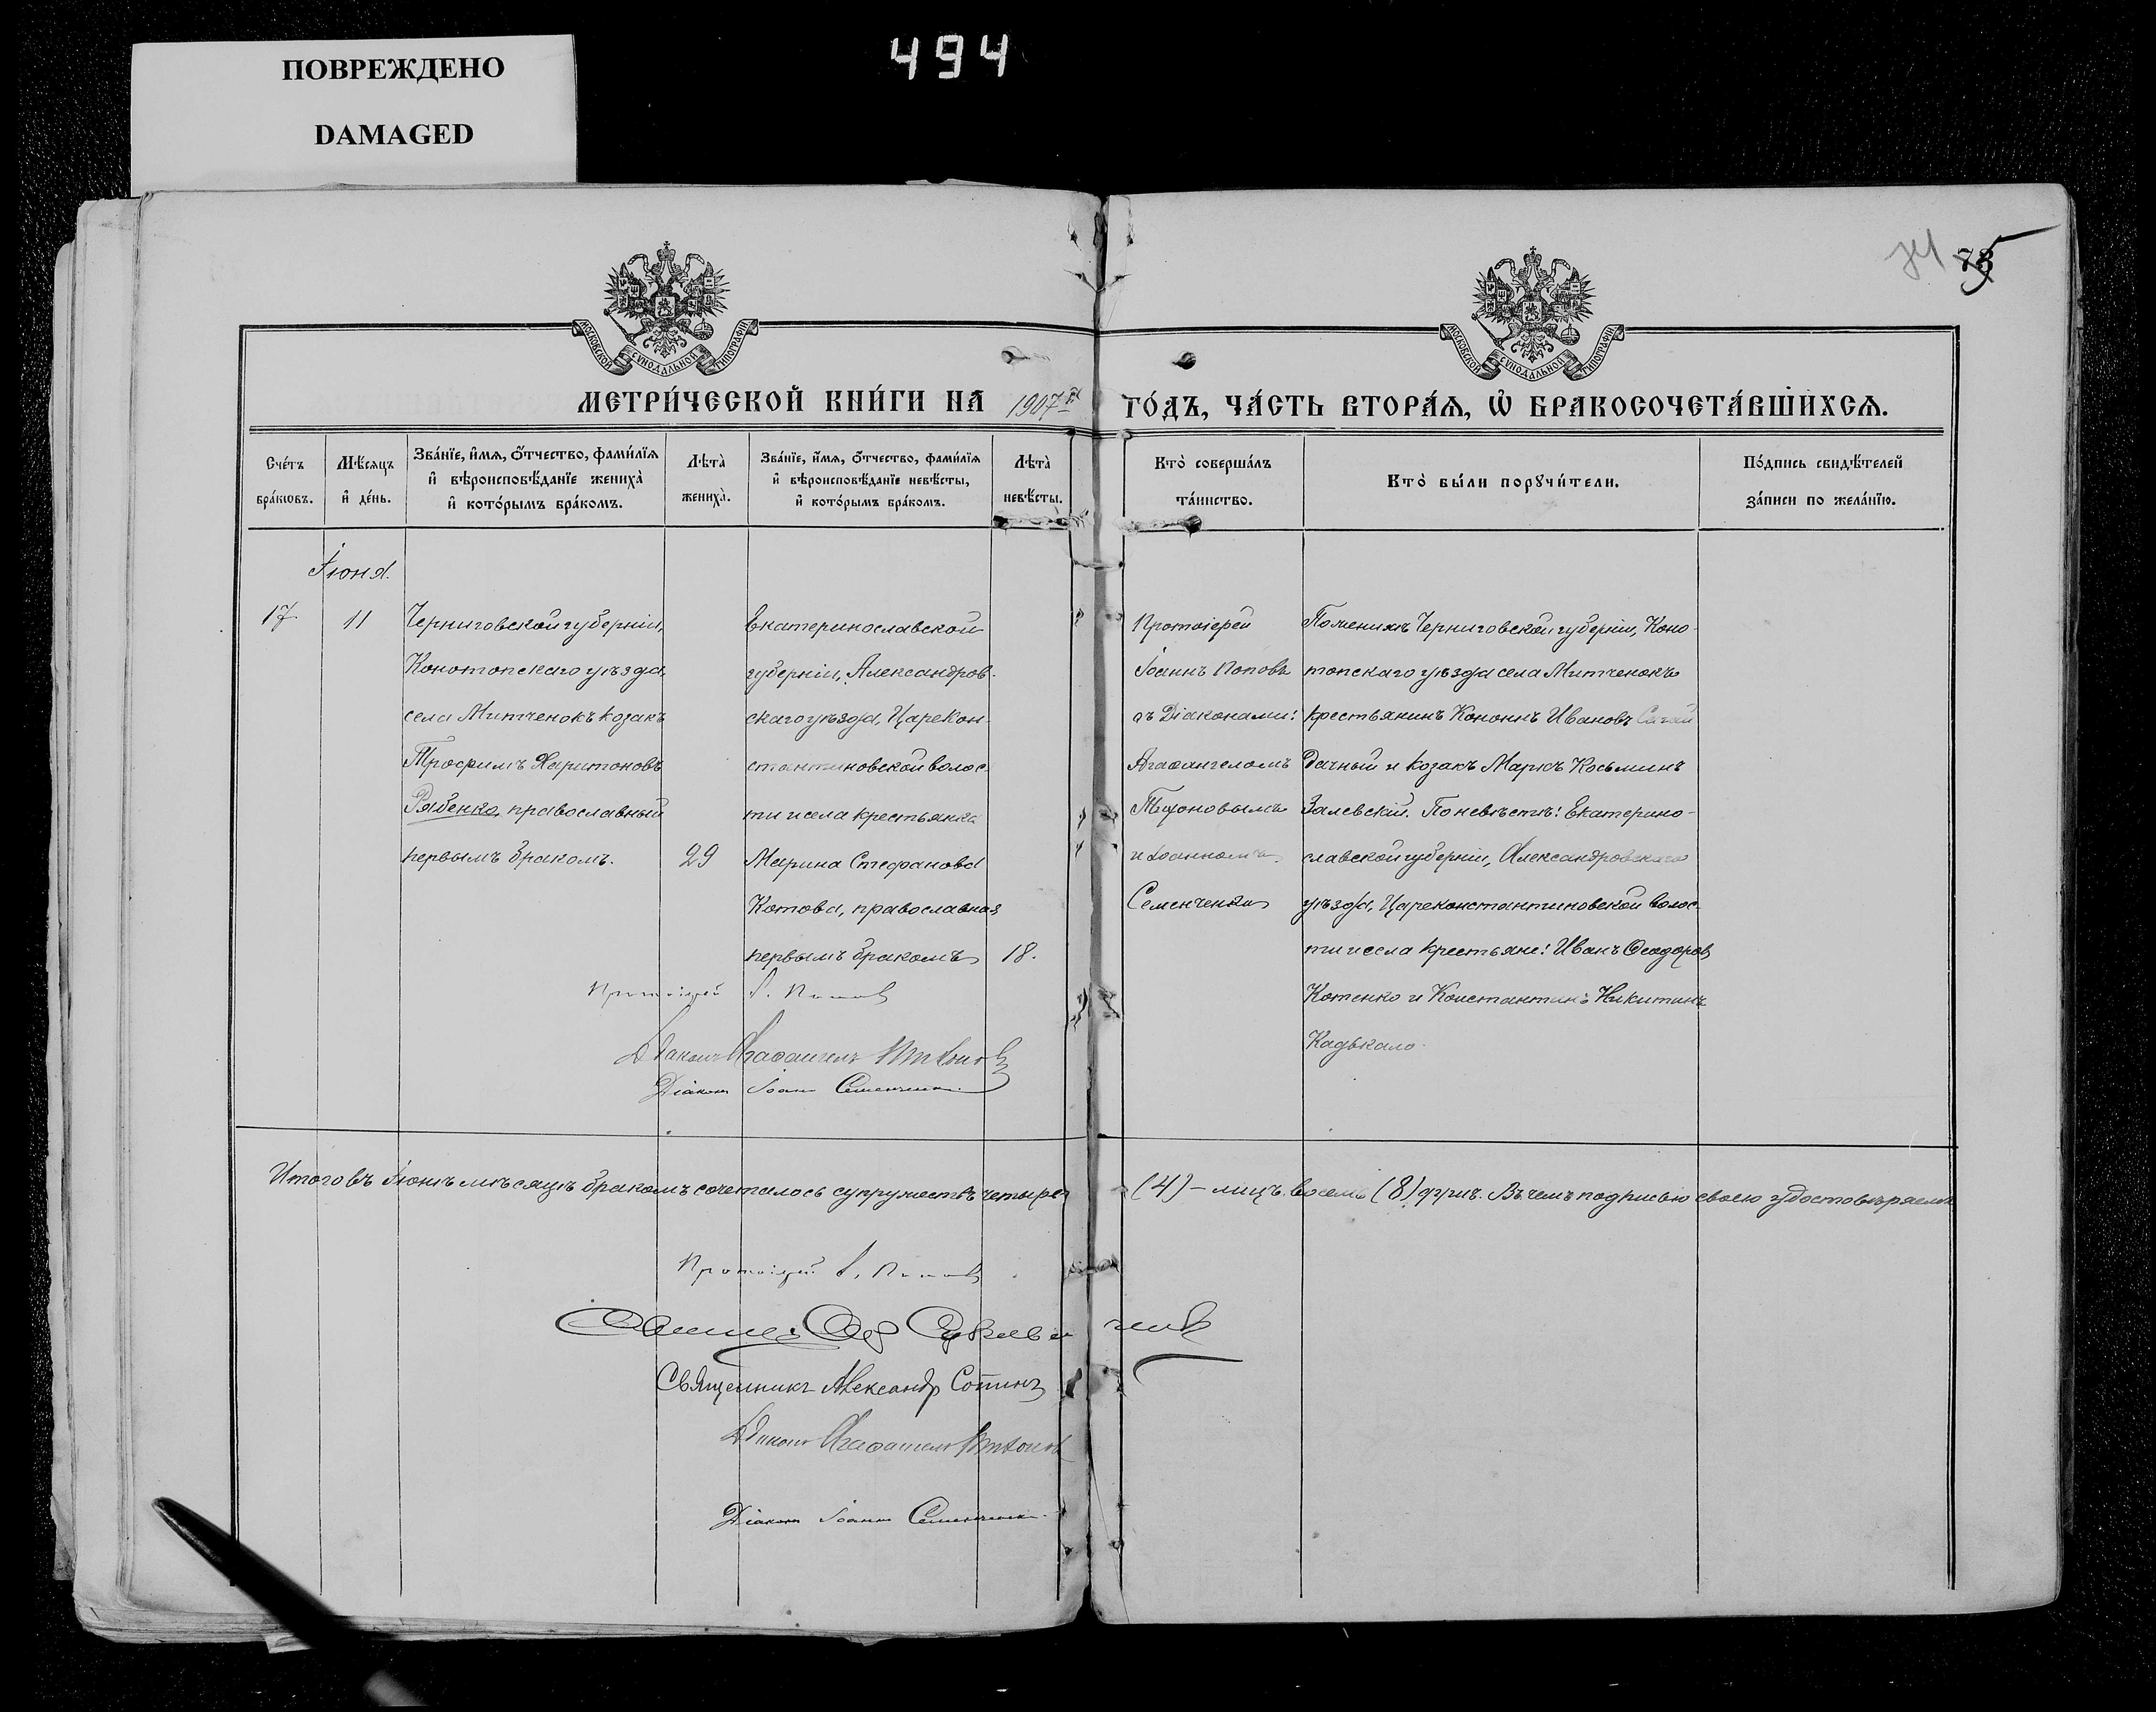 ПОВРЕЖДЕНО
DAMAGED
494
74 75
МОСКОВСКОЙ СѴНОДАЛЬНОЙ ТИПОГРАФІИ
МОСКОВСКОЙ СѴНОДАЛЬНОЙ ТИПОГРАФІИ
МЕТРИ́ЧЕСКОЙ КНИ́ГИ НА 1907й ГО́ДЪ, ЧА́СТЬ ВТОРА́Ѧ, Ѡ҆ БРАКОСОЧЕТА́ВШИХСѦ.
Сче́тъ бра́кѡвъ.
Мѣ́сяцъ и҆ де́нь.
Зва́нїе, и҆́мѧ, ѻ҆́тчество, фами́лїѧ и҆ вѣроисповѣ́данїе жениха̀ и҆ кото́рымъ бра́комъ.
Лѣта̀ жениха̀.
Зва́нїе, и҆́мѧ, ѻ҆́тчество, фами́лїѧ и҆ вѣроисповѣ́данїе невѣ́сты, и҆ кото́рымъ бра́комъ.
Лѣта̀ невѣ́сты.
Кто̀ соверша́лъ та́инство.
Кто̀ бы́ли порꙋчи́тели.
По́дпись свидѣ́телей за́писи по жела́нїю.
Іюня.
17
11
Черниговской губерніи,
Конотопскаго уѣзда,
села Митченокъ козакъ
Трофимъ Харитоновъ
Рябенко, православный
первымъ бракомъ.
29
Екатеринославской
губерніи, Александров-
скаго уѣзда, Царекон-
стантиновской волос-
ти и села крестьянка
Марина Стефанова
Котова, православная
первымъ бракомъ
18.
Протоіерей
Іоаннъ Поповъ
съ Діаконами:
Агаѳангеломъ
Тихоновымъ
и Іоанномъ
Семенченко
По женихѣ: Черниговской губерніи, Коно-
топскаго уѣзда села Митченокъ
крестьянинъ Кононъ Ивановъ Сагай
дачный и козакъ Маркъ Косьминъ
Залевскій. По невѣстѣ: Екатерино-
славской губерніи, Александровскаго
уѣзда, Цареконстантиновской волос-
ти и села крестьяне: Иванъ Ѳеодоровъ
Котенко и Константинъ Никитинъ
Кадькало.
Протоіерей І. Поповъ
Діаконъ Агаѳангелъ Тихоновъ
Діаконъ Іоаннъ Семенченко.
Итого въ Іюнѣ мѣсяцѣ бракомъ сочеталось супружествъ четыре (4) – лицъ восемь (8) душъ. Въ чемъ подписью своею удостовѣряемъ
Протоіерей І. Поповъ
Священникъ Александръ Сотинъ
Діаконъ Агаѳангелъ Тихоновъ
Діаконъ Іоаннъ Семенченко.